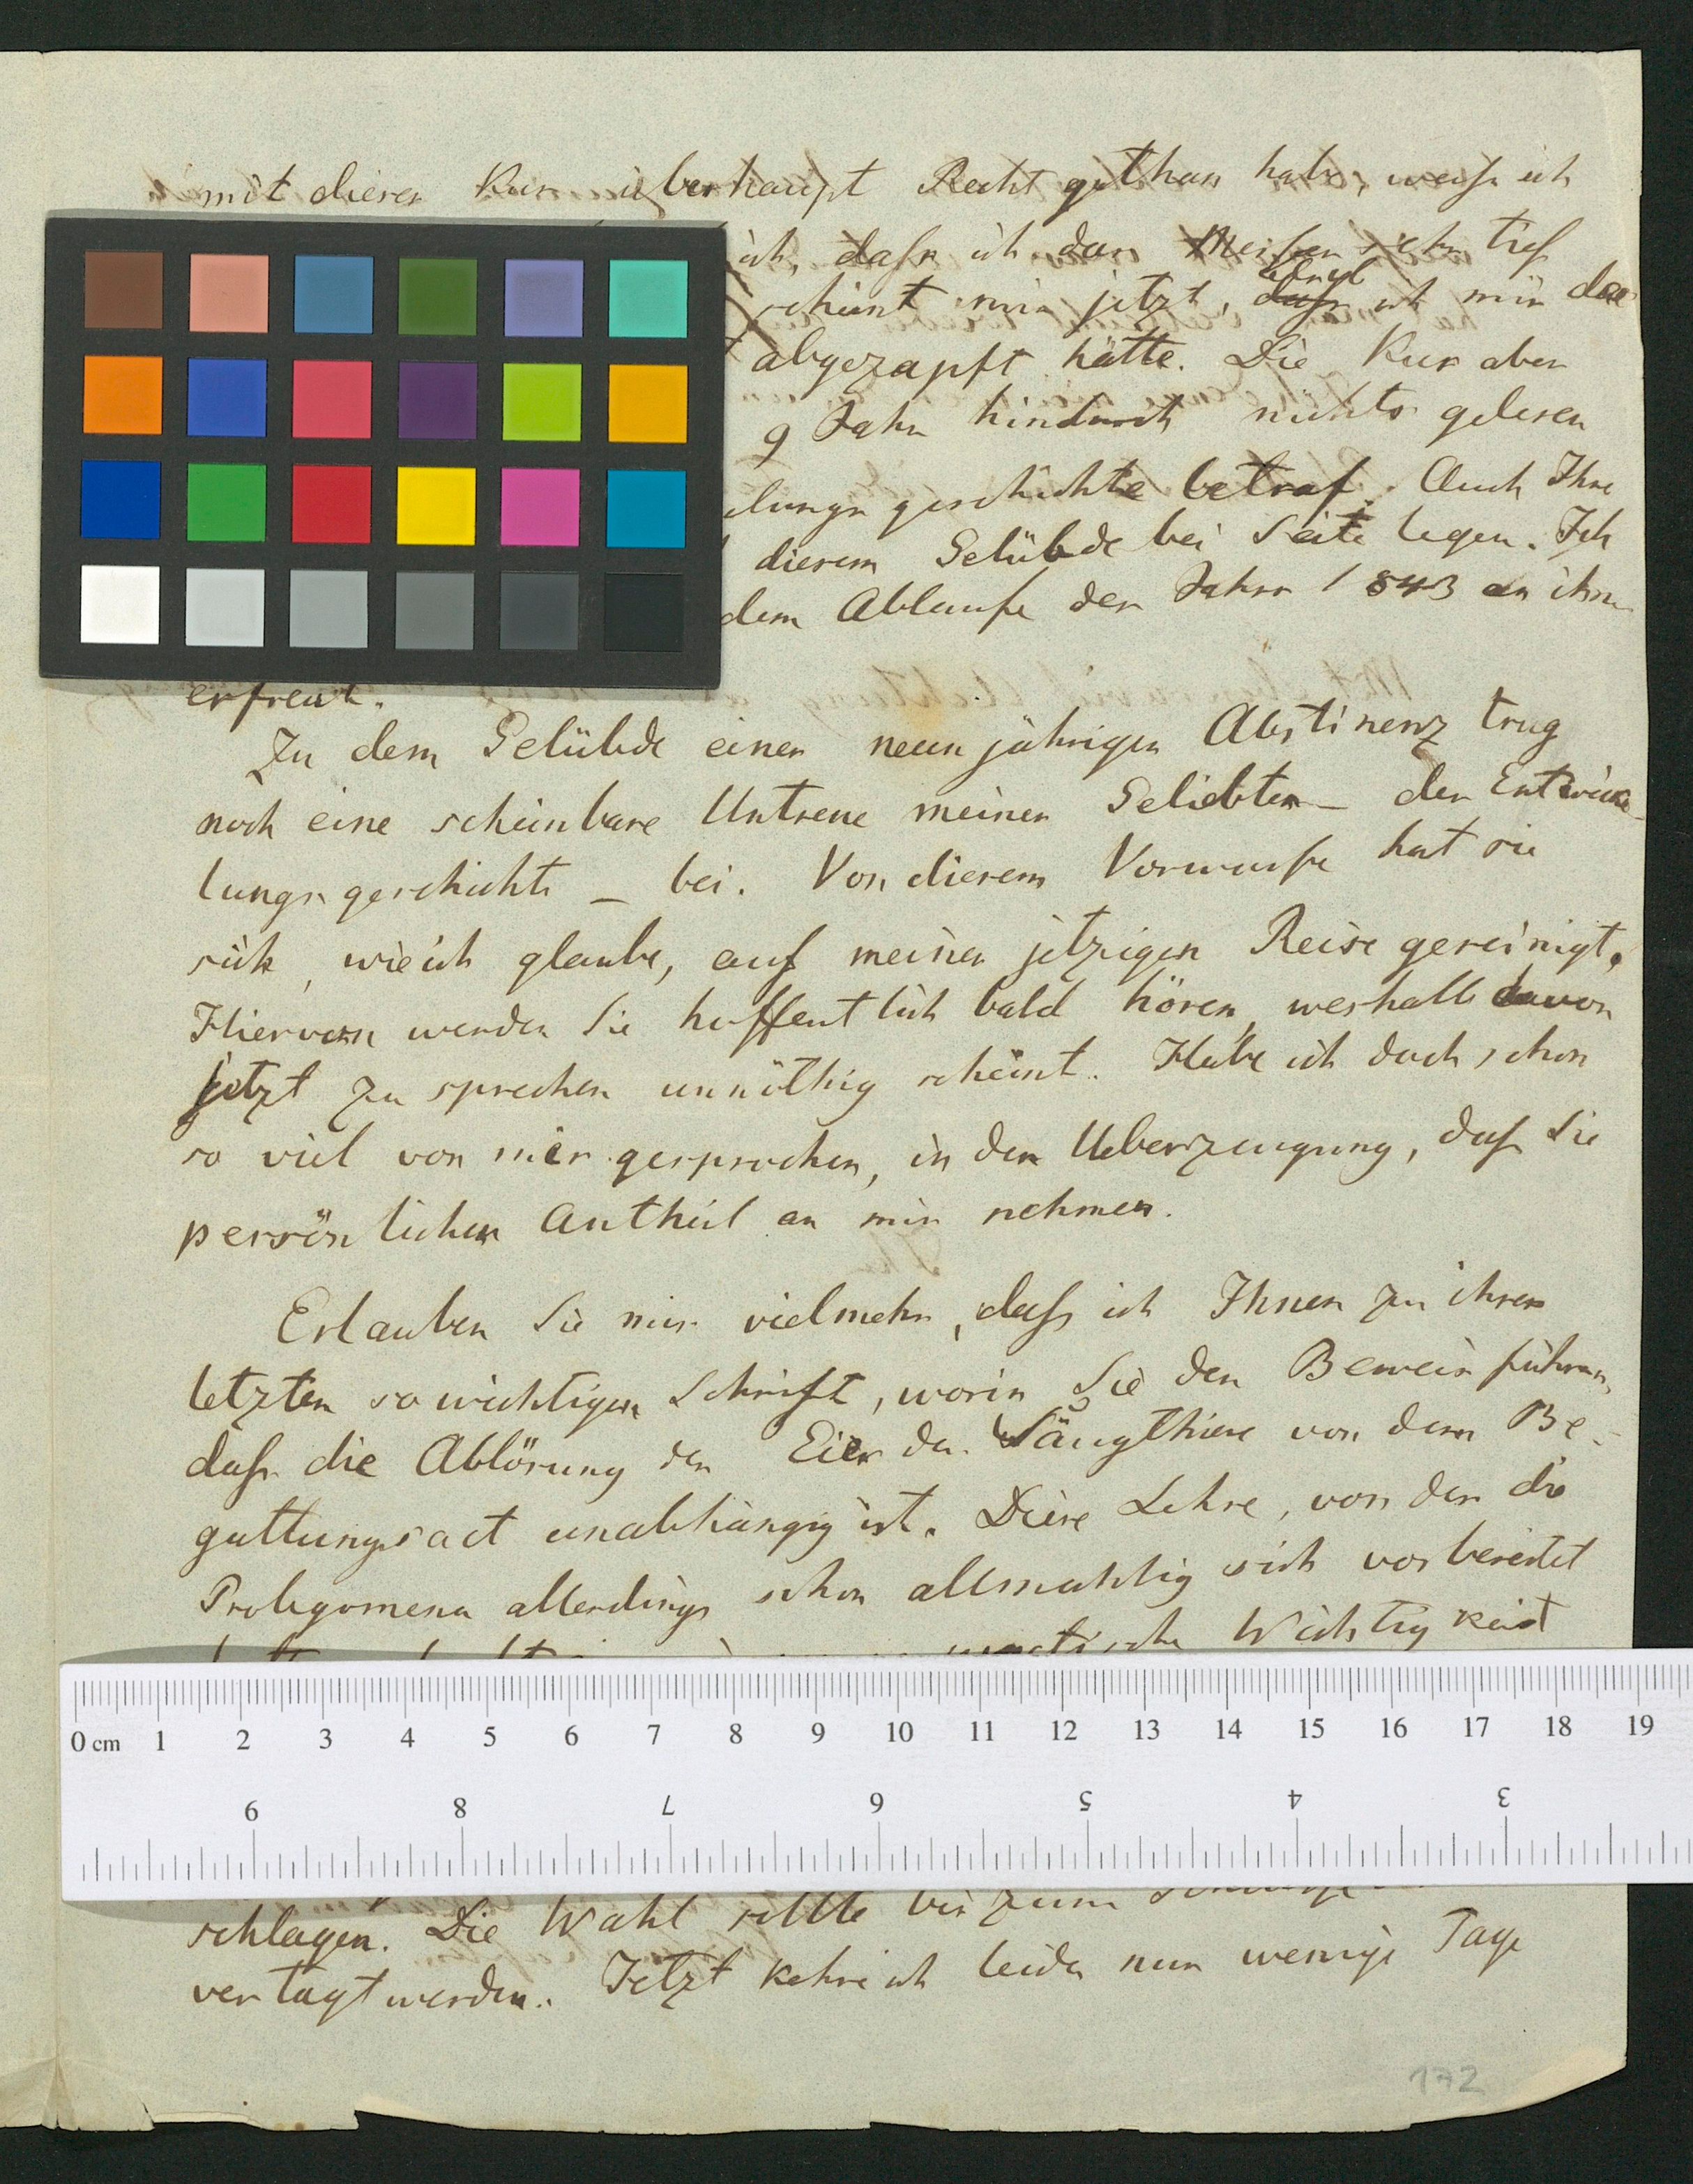 mit dieser Kur überhaupt Recht gethan habe, weiß ich
ich, daß ich das Messer sehr tief
scheint mir jetzt, als ob ich mir das
abgezapft hätte. Die Kur aber
9 Jahr hindurch nichts gelesen
lungsgeschichte betraf. Auch Ihre
diesem Gelübde bei Seite legen. Ich
dem Ablaufe des Jahrs 1843 an ihr
erfreut.
Zu dem Gelübde einer neunjährigen Abstinenz trug
noch eine scheinbare Untreue meiner Geliebten – der Entwicke-
lungsgeschichte – bei. Von diesem Vorwurfe hat sie
sich, wie ich glaube, auf meiner jetzigen Reise gereinigt.
Hiervon werden Sie hoffentlich bald hören, weshalb davon
jetzt zu sprechen unnöthig scheint. Habe ich doch schon
so viel von mir gesprochen, in der Ueberzeugung, daß Sie
persönlichen Antheil an mir nehmen.
Erlauben Sie mir vielmehr, daß ich Ihnen zu ihrer
letzten so wichtigen Schrift, worin Sie den Beweis führen,
daß die Ablösung der Eier der Säugthiere von dem Be-
gattungsact unabhängig ist. Diese Lehre, von der die
Prolegomena allerdings schon allmahlig sich vorbereitet
Wichtigkeit
0 cm 1 2 3 4 5 6 7 8 9 10 11 12 13 14 15 16 17 18 19
9 8 7 6 5 4 3
schlagen. Die Wahl sollte bis zum
vertagt werden. Jetzt kehre ich leider nur wenige Tage
172